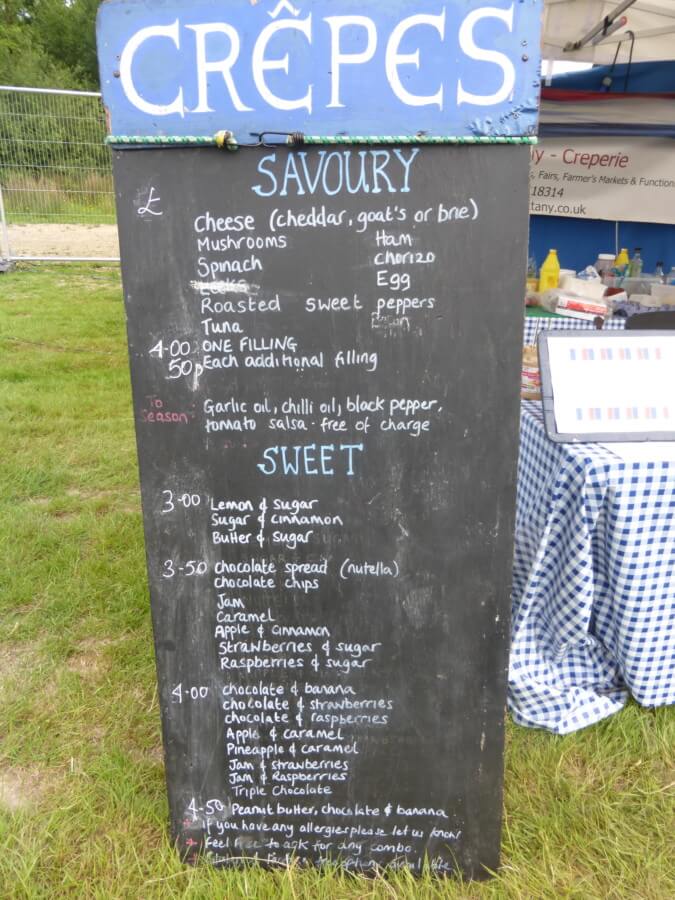 CRÊPES
SAVOURY
£
cheese (cheddar, goat's or brie)
Mushrooms Ham
Spinach Chorizo
Leeks Egg
Roasted sweet peppers
Tuna Bacon
4.00 ONE FILLING
50p Each additional filling
To Season Garlic oil, chilli oil, black pepper,
tomato salsa - free of charge
SWEET
3.00 Lemon & sugar
Sugar & cinnamon
Butter & sugar
3-50 chocolate spread (nutella)
chocolate chips
Jam
Caramel
Apple & cinnamon
Strawberries & sugar
Raspberries & sugar
4.00 chocolate & banana
chocolate & strawberries
chocolate & raspberries
Apple & caramel
Pineapple & caramel
Jam & strawberries
Jam & Raspberries
Triple Chocolate
4-50 Peanut butter, chocolate & banana
+ if you have any allergies please let us know
+ Feel free to ask for any combo.
option available
- Creperie
Fairs, Farmer's Markets & Functions
18314
tany.co.uk